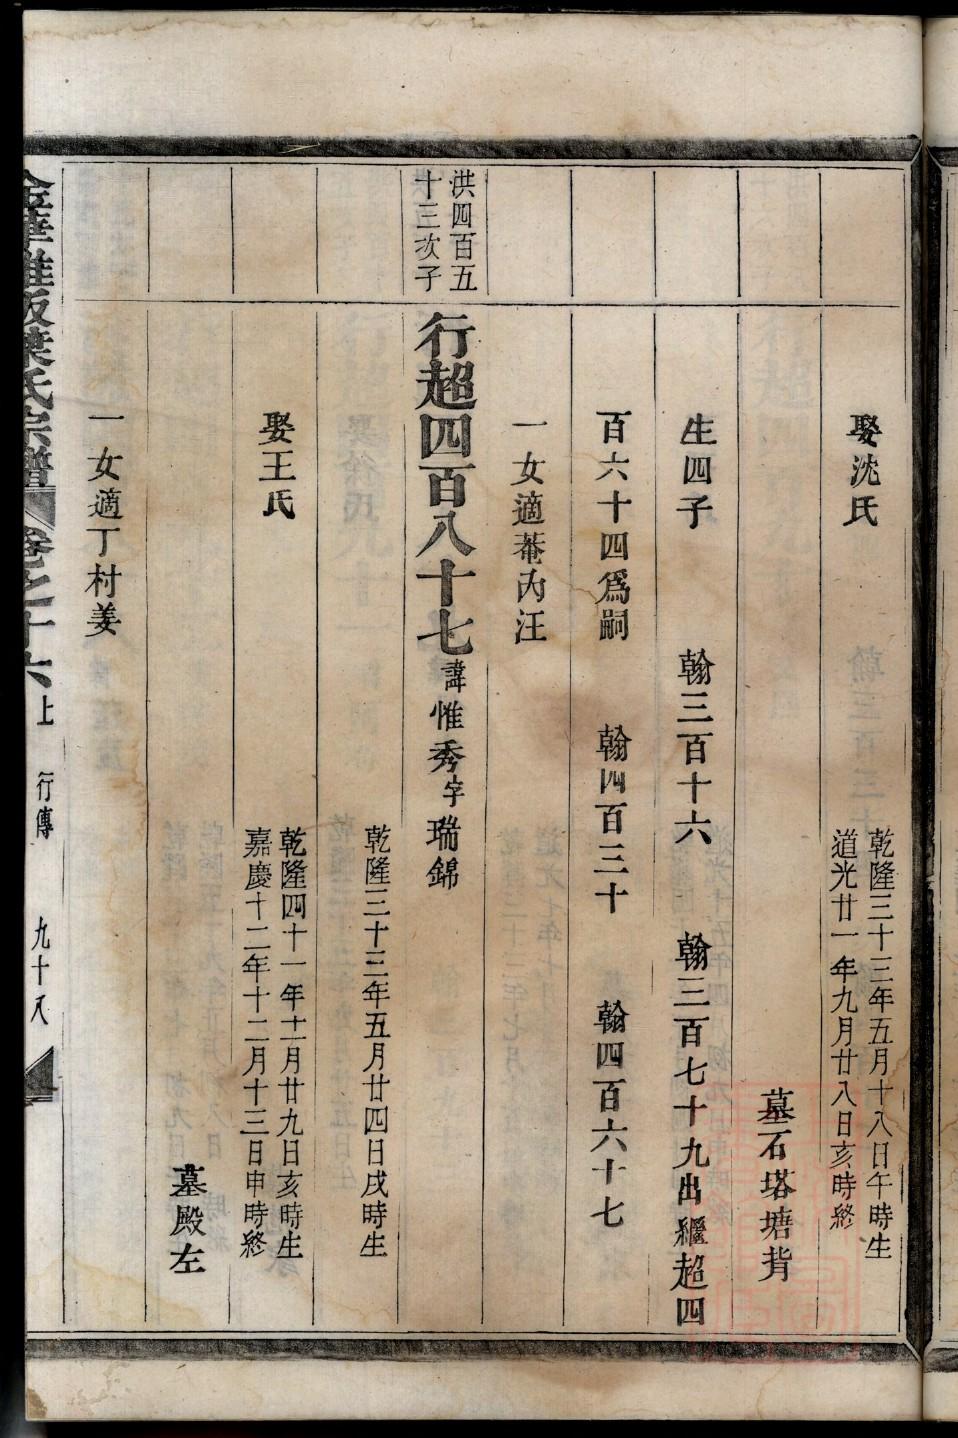 娶沈氏
乾隆三十三年五月十八日午時生
道光廿一年九月廿八日亥時終
墓石塔塘背
生四子 翰三百十六 翰三百七十九出繼超四
百六十四爲嗣 翰四百三十 翰四百六十七
一女適菴內汪
洪四百五
十三次子
行超四百八十七 諱惟秀字瑞錦
乾隆三十三年五月廿四日戌時生
娶王氏
乾隆四十一年十一月廿九日亥時生
嘉慶十二年十二月十三日申時終
墓殿左
一女適丁村姜
葉氏宗譜 卷之十六上 行傳 九十八